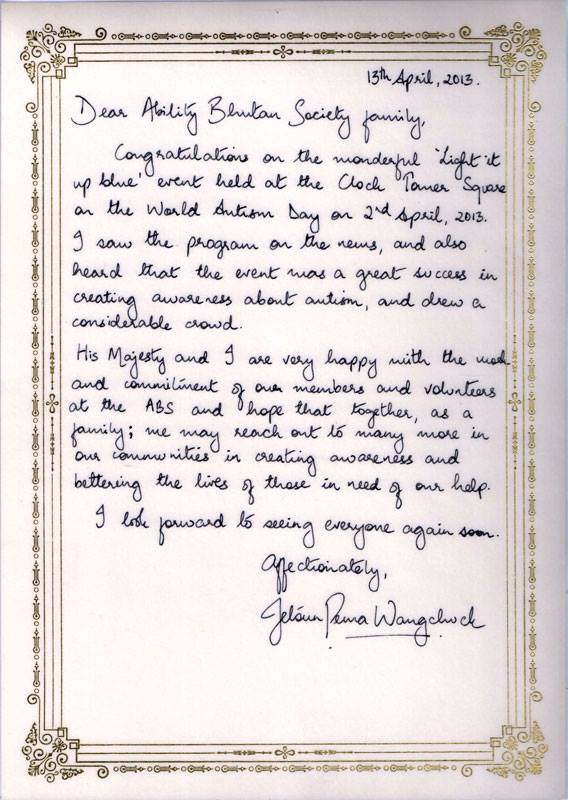 13th April, 2013.
Dear Ability Bhutan Society family,
Congratulations on the wonderful 'Light it
up blue' event held at the Clock Tower Square
on the World Autism Day on 2nd April, 2013.
I saw the program on the news, and also
heard that the event was a great success in
creating awareness about autism, and drew a
considerable crowd.
His Majesty and I are very happy with the work
and commitment of our members and volunteers
at the ABS and hope that together, as a
family; we may reach out to many more in
our communities in creating awareness and
bettering the lives of those in need of our help.
I look forward to seeing everyone again soon.
Affectionately,
Jetsun Pema Wangchuck